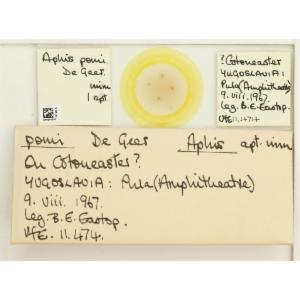 Aphis pomi.
De Geer.
mm
1 apt.
?Cotoneaster
YUGOSLAVIA:
Pula (Amphitheatre)
9. viii. 1967.
leg. B.E. Eastop.
VfE 11.474
pomi De Geer Aphis apt. mm
On Cotoneaster?
YUGOSLAVIA: Pula (Amphitheatre)
9. viii. 1967.
leg. B.E. Eastop.
VfE. 11.474.